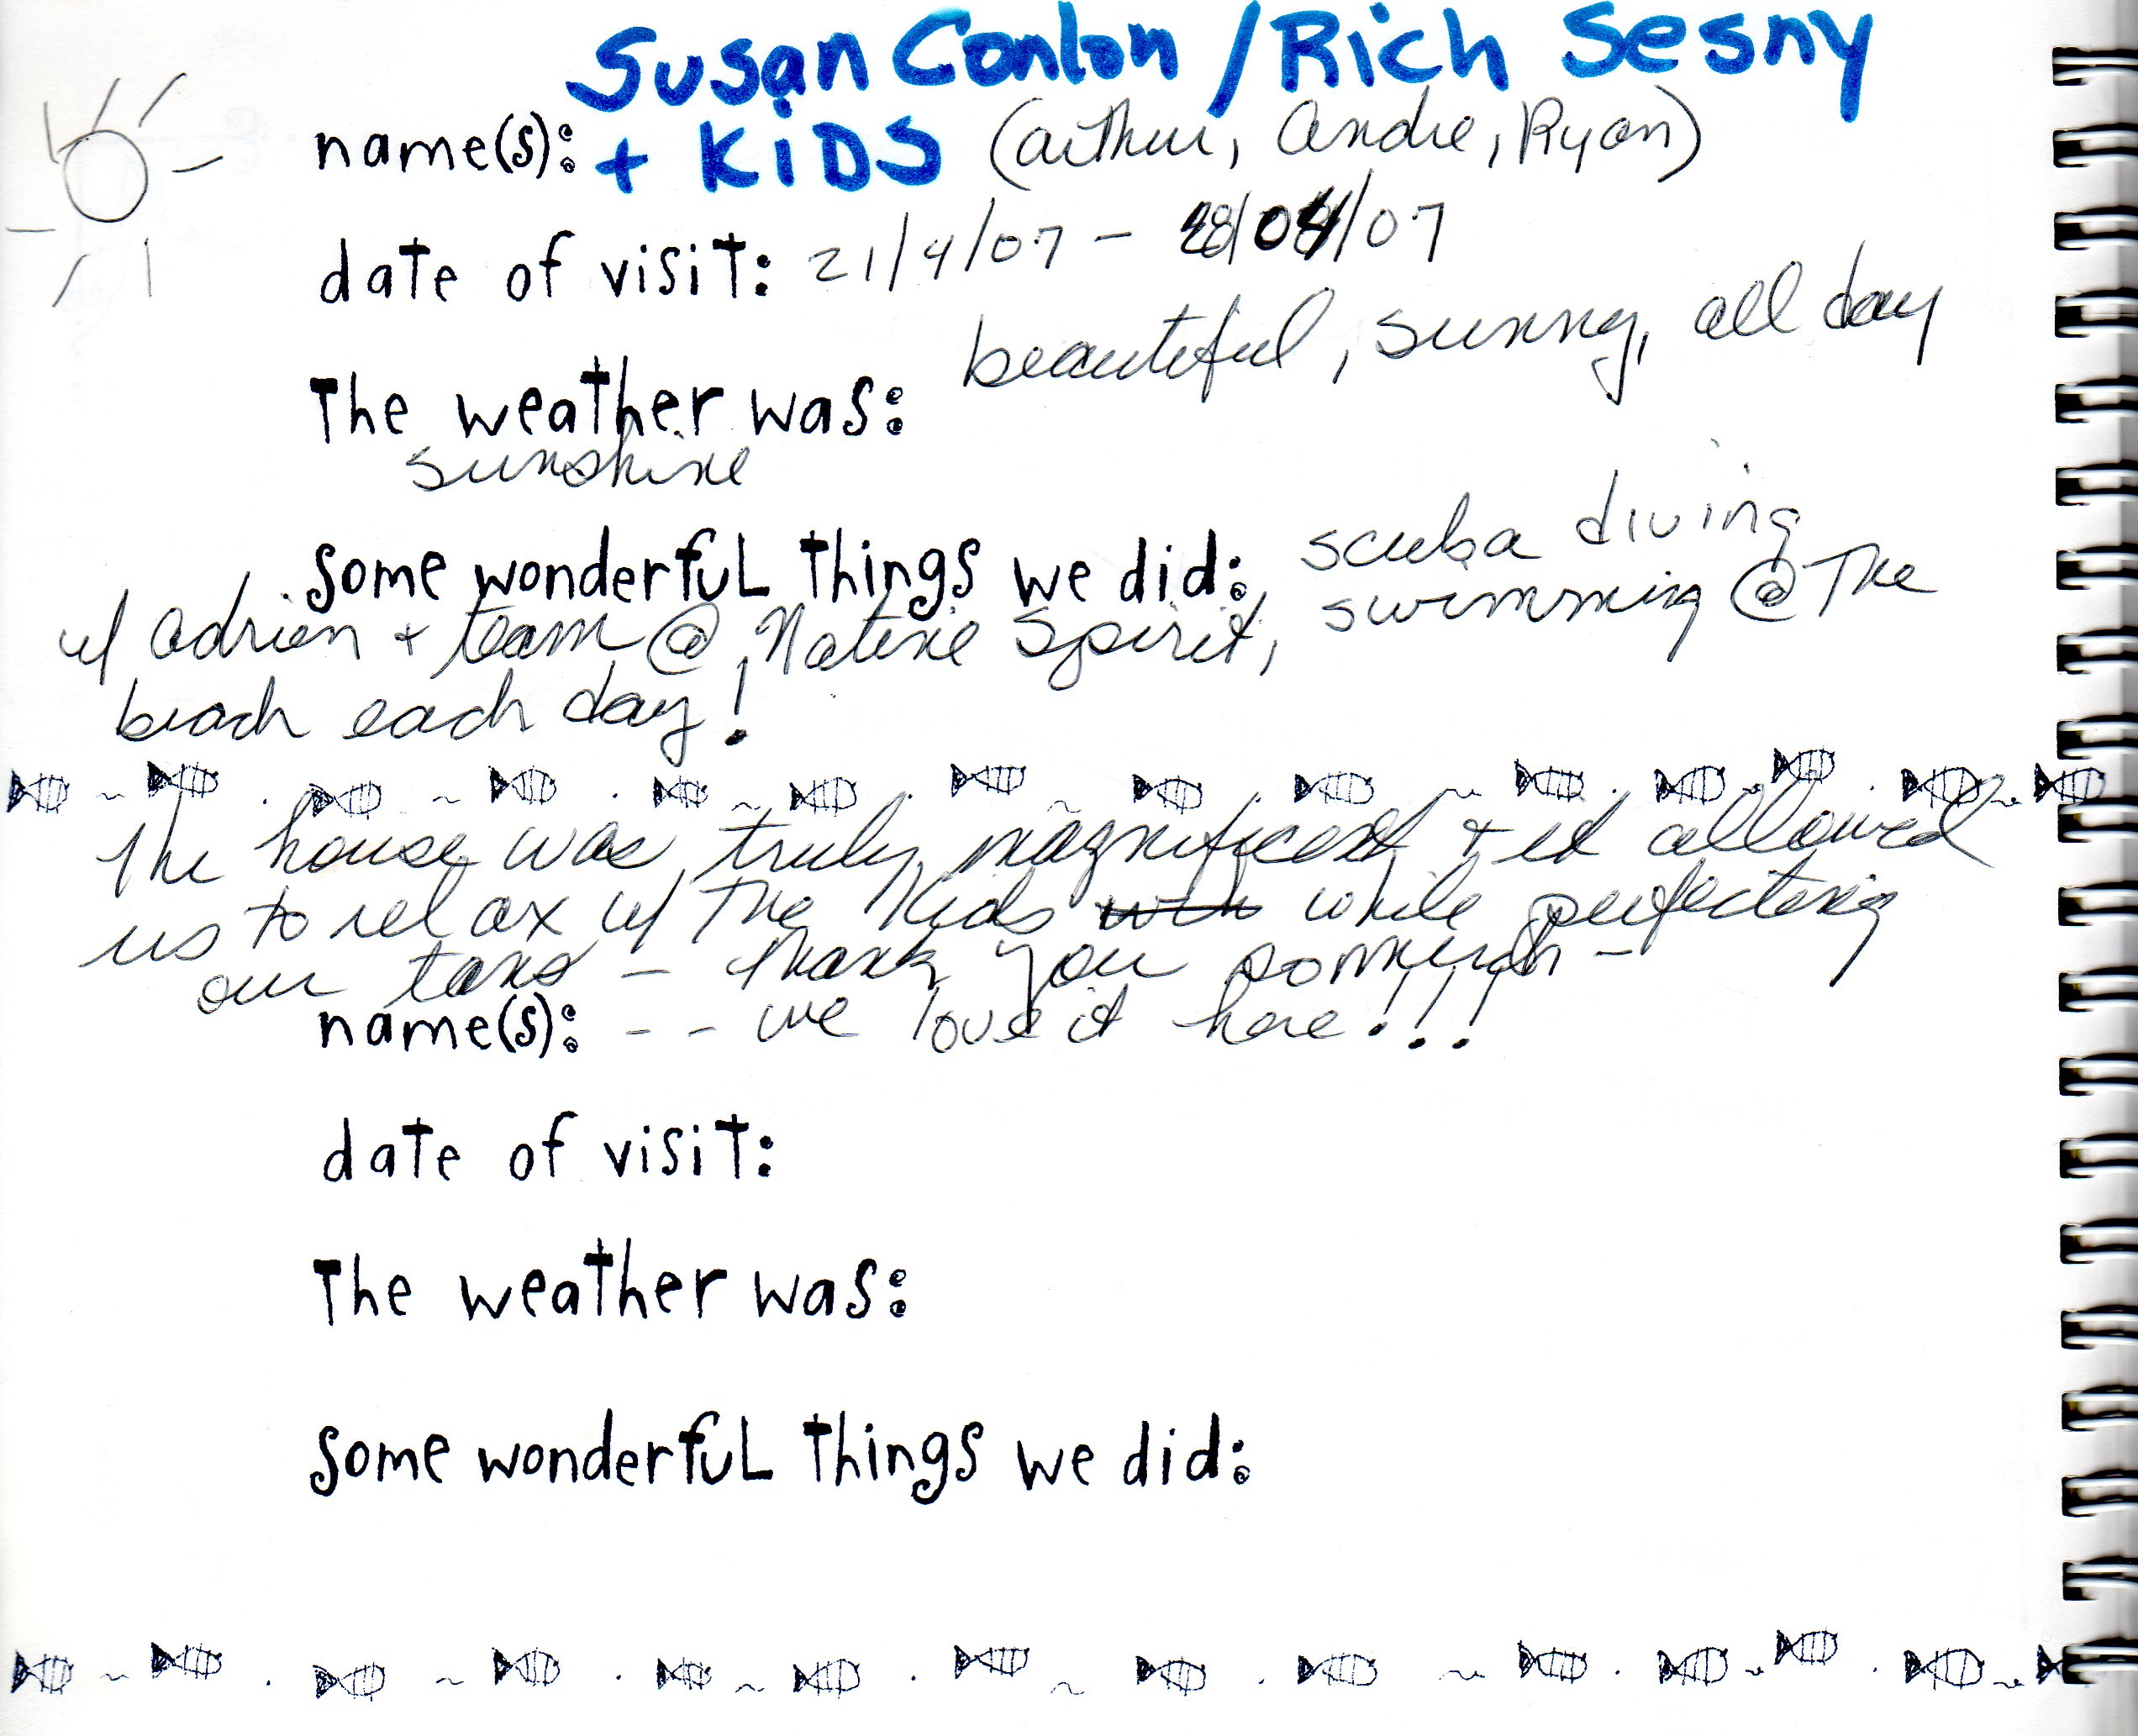 Susan Conlon / Rich Sesny
name(s): + KiDS (arthur, Andre, Ryan)
date of visit: 21/4/07 - 28/04/07
The weather was: beautiful, sunny, all day
sunshine
Some wonderful things we did: scuba diving
w/ Adrien + team @ Native Spirit, swimming @ The
beach each day!
The house was truly magnificent + it allowed
us to relax w/ The Kids while perfecting
our tans - Thank you so much -
name(s): - - we love it here!!!
date of visit:
The weather was:
Some wonderful things we did: